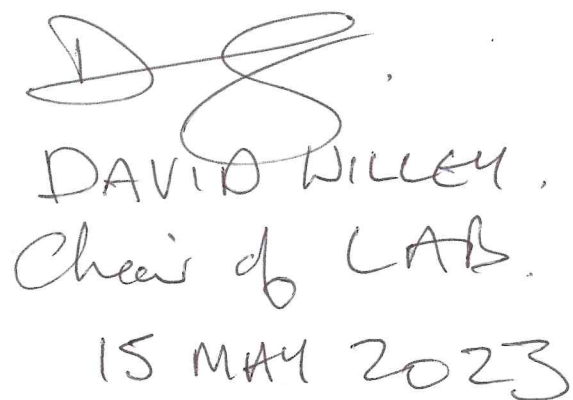 DAVID WILLEY.
Chair of LAB.
15 MAY 2023